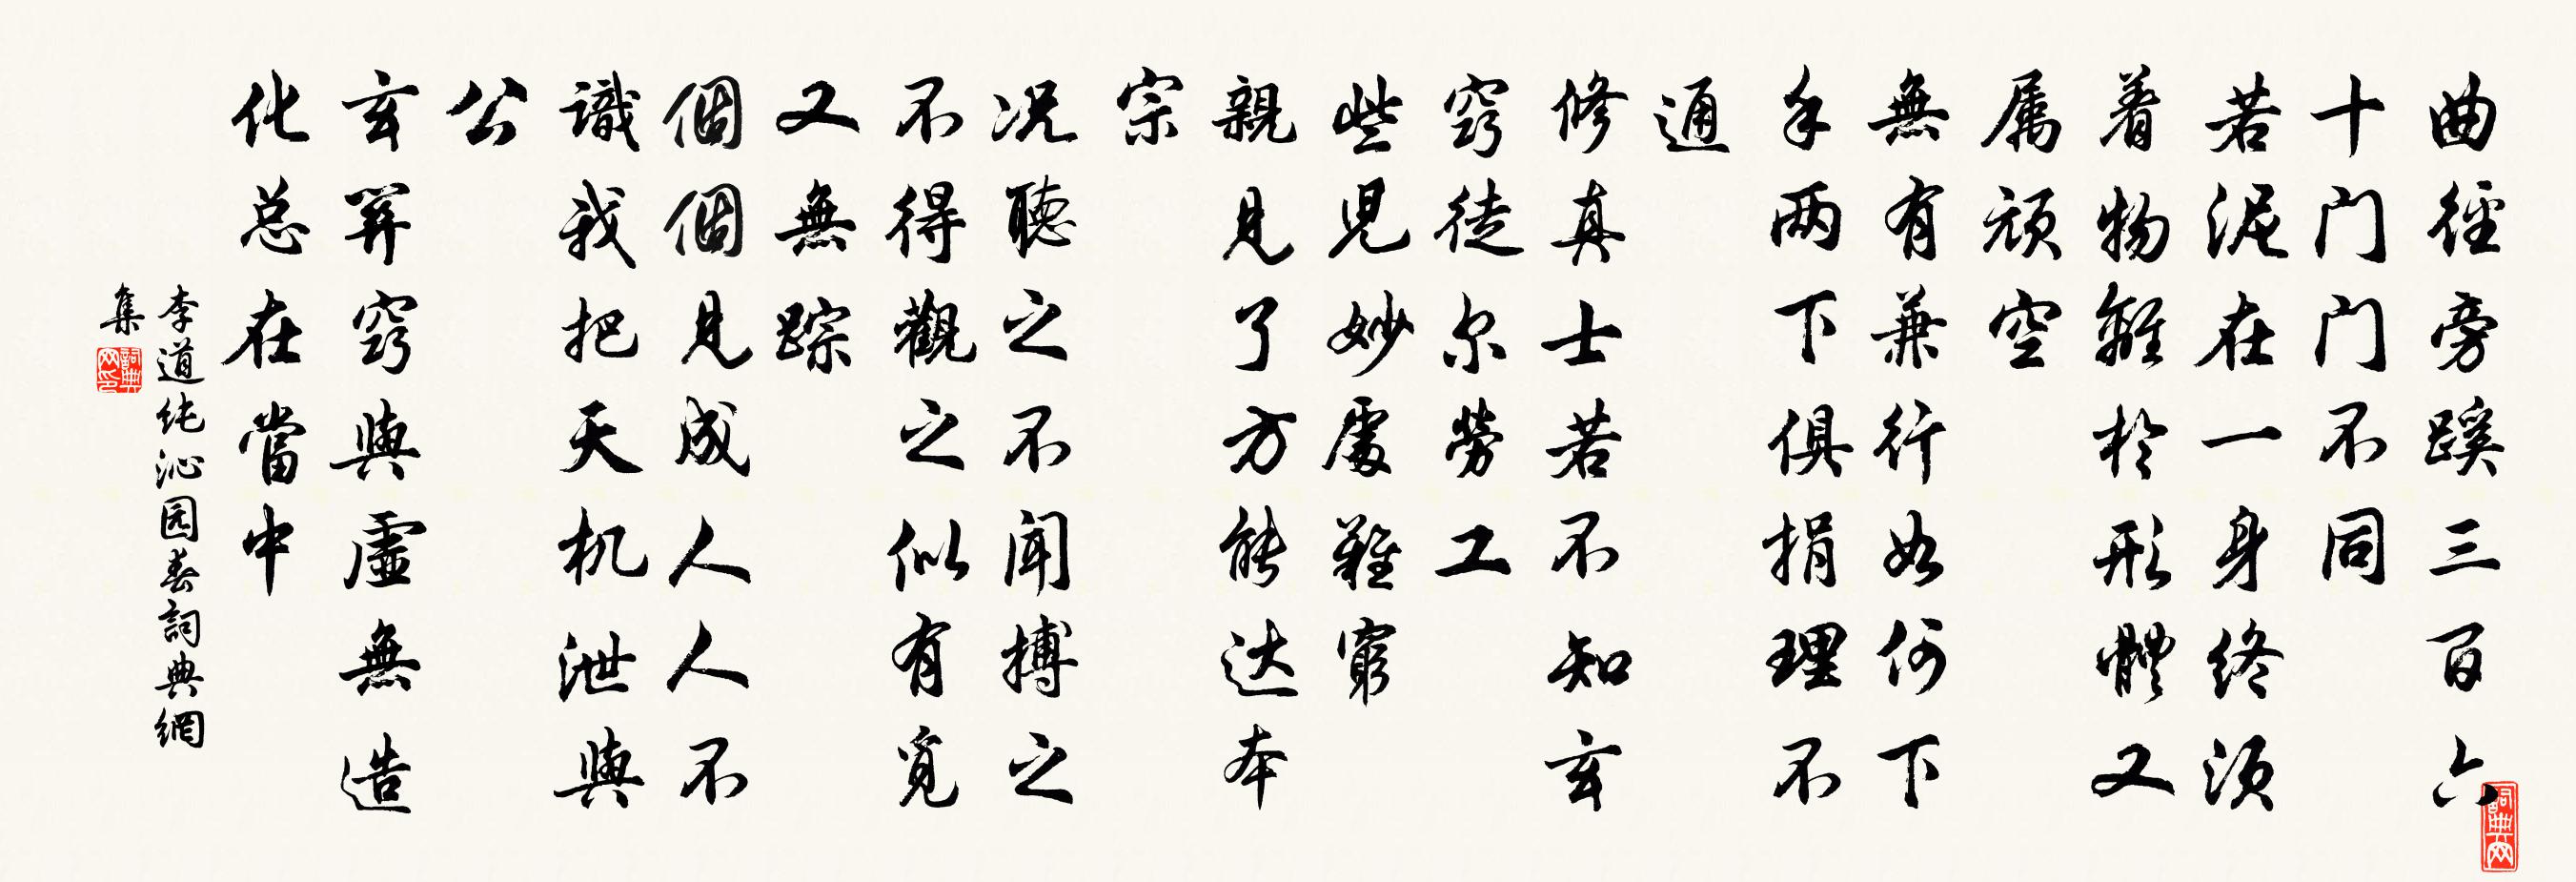 曲徑旁蹊三百六
十门门不同
若泥在一身终须
着物離於形體又
属顽空
無有兼行如何下
手两下俱捐理不
通
修真士若不知玄
窍徒尔劳工
些児妙處難窮
親見了方能达本
宗
况聴之不闻搏之
不得觀之似有覓
又無踪
個個見成人人不
識我把天机泄與
公
玄関窍與虚無造
化总在當中
李道纯沁园春詞典網
集
詞典网印
詞典网